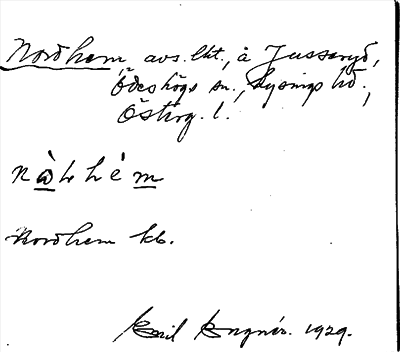 Nordhem, avs. lht., å Jusseryd,
Ödeshögs sn., Lysings hd.,
Östrg. l.
Nordhem kb.
Emil Engnér. 1929.